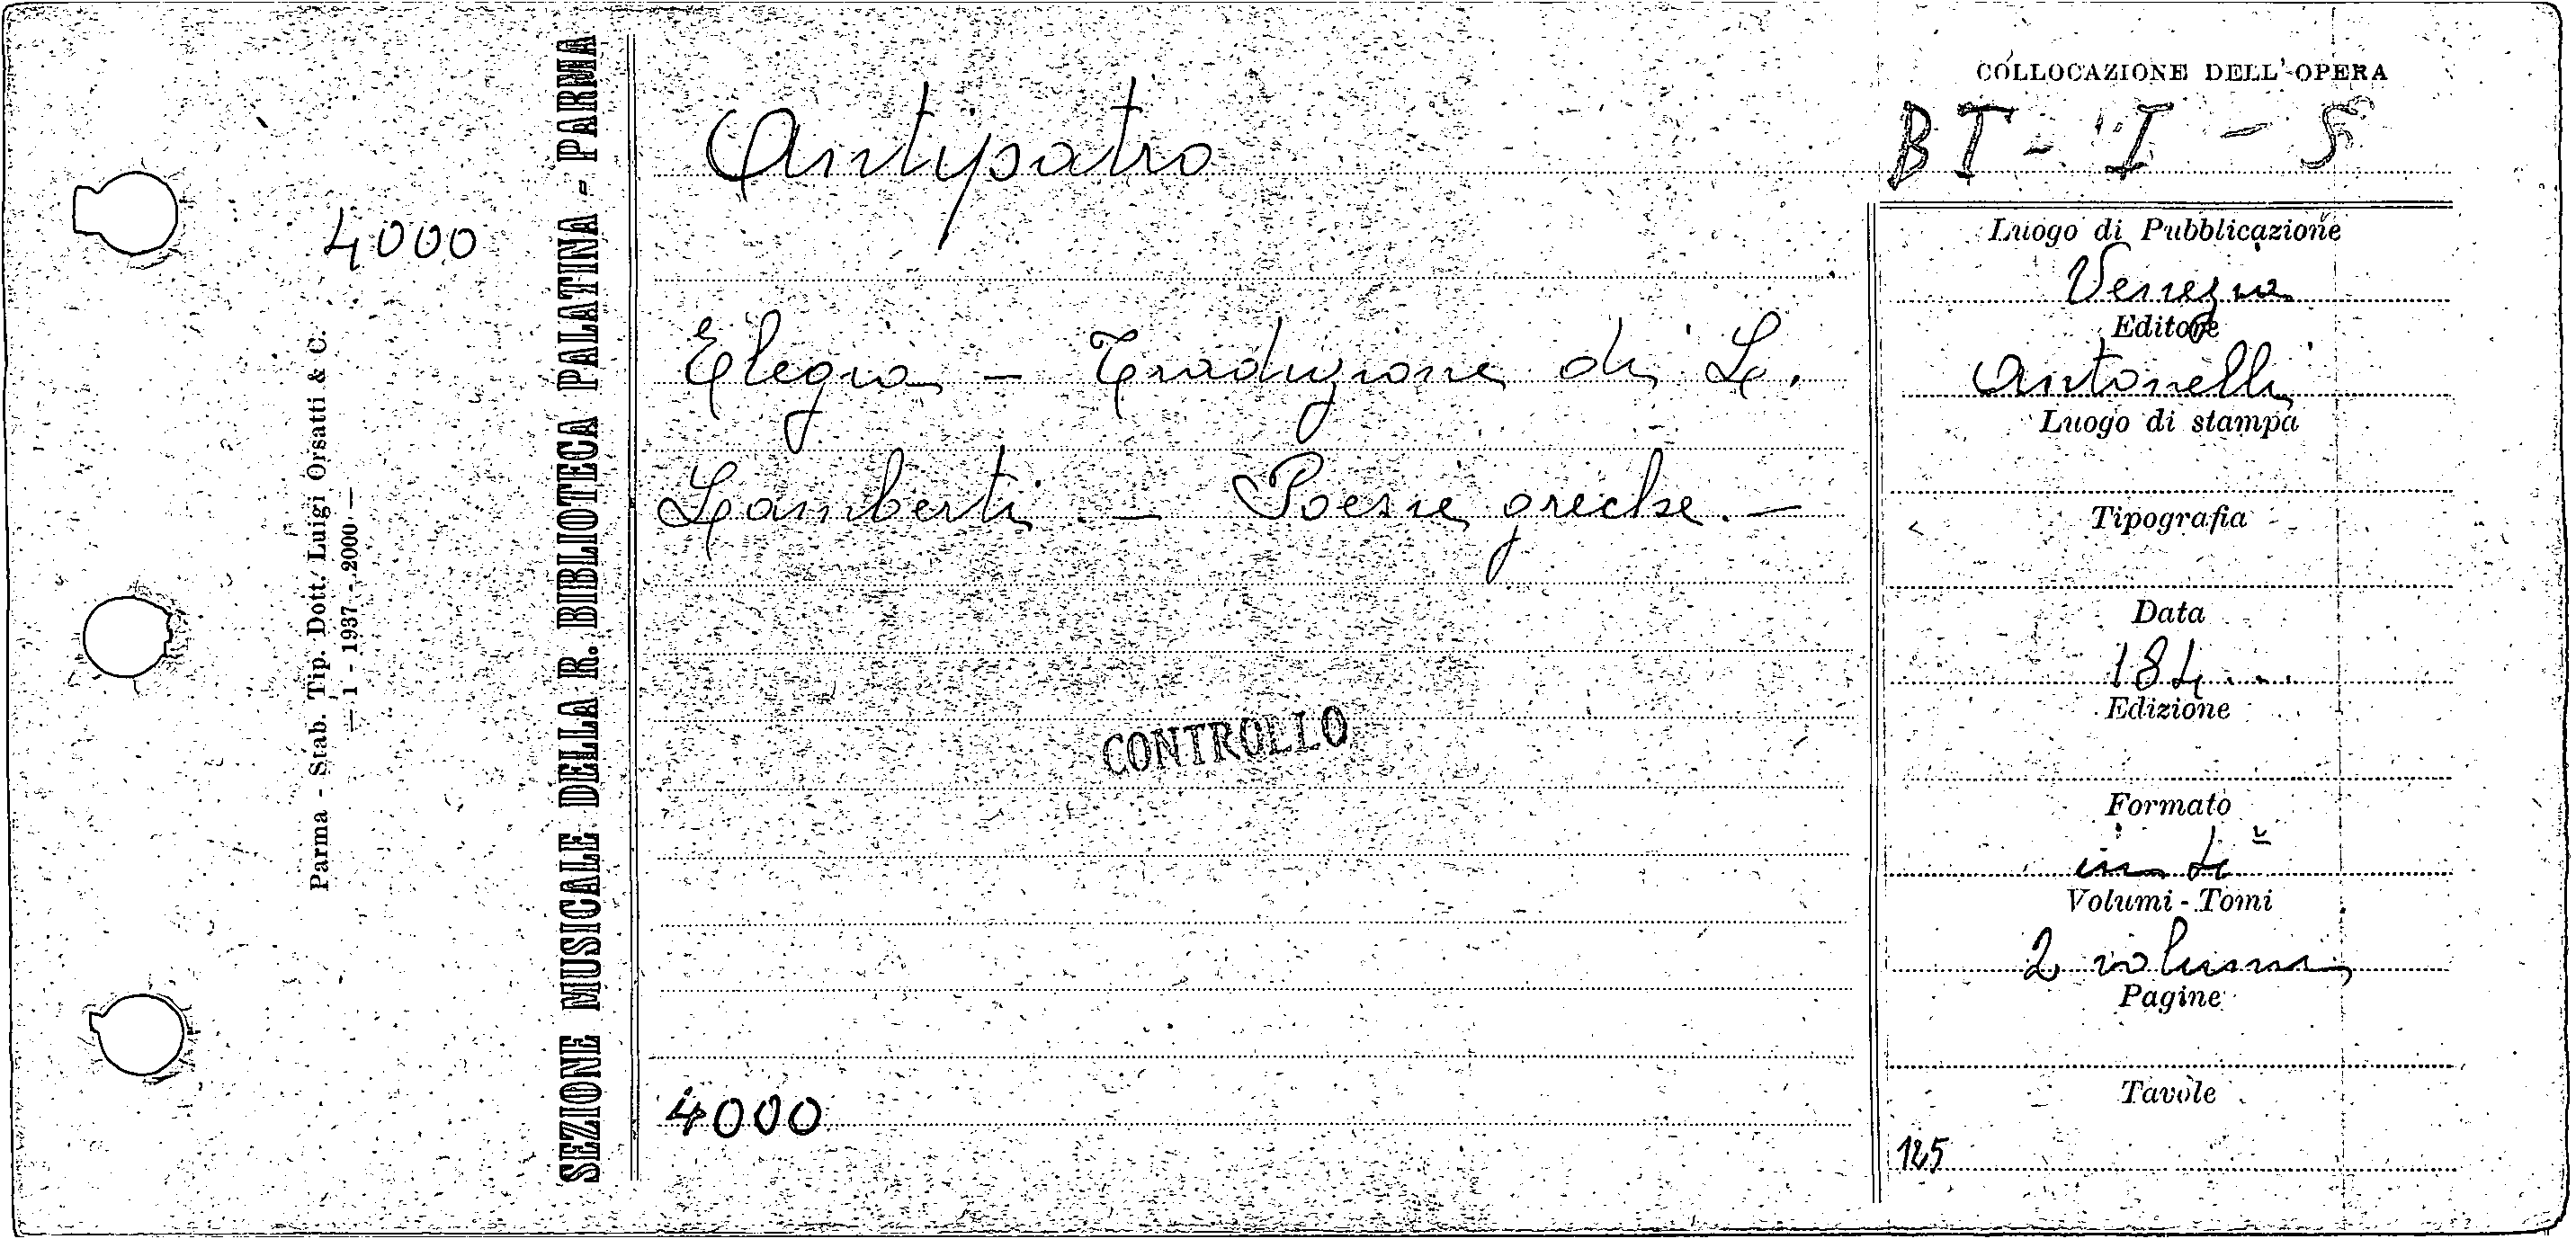 4000
Parma - Stab. Tip. Dott. Luigi Orsatti & C.
— 1 - 1937 - 2000 —
SEZIONE MUSICALE DELLA R. BIBLIOTECA PALATINA - PARMA
Antipatro
Elegia - Traduzione di L.
Lamberti. - Poesie greche. -
CONTROLLO
4000
COLLOCAZIONE DELL'OPERA
BT - I - 5
Luogo di Pubblicazione
Venezia
Editore
Antonelli
Luogo di stampa
Tipografia
Data
184...
Edizione
Formato
in 4°
Volumi - Tomi
2 volumi
Pagine
Tavole
125